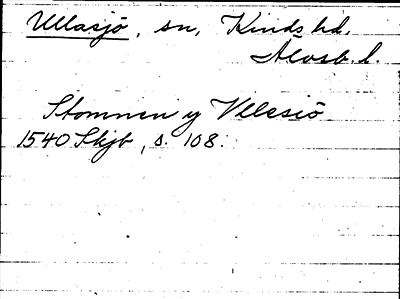 Ullasjö, sn, Kinds hd.
Älvsb. l.
Stommen y Vllesiö
1540 Skjb, s. 108.